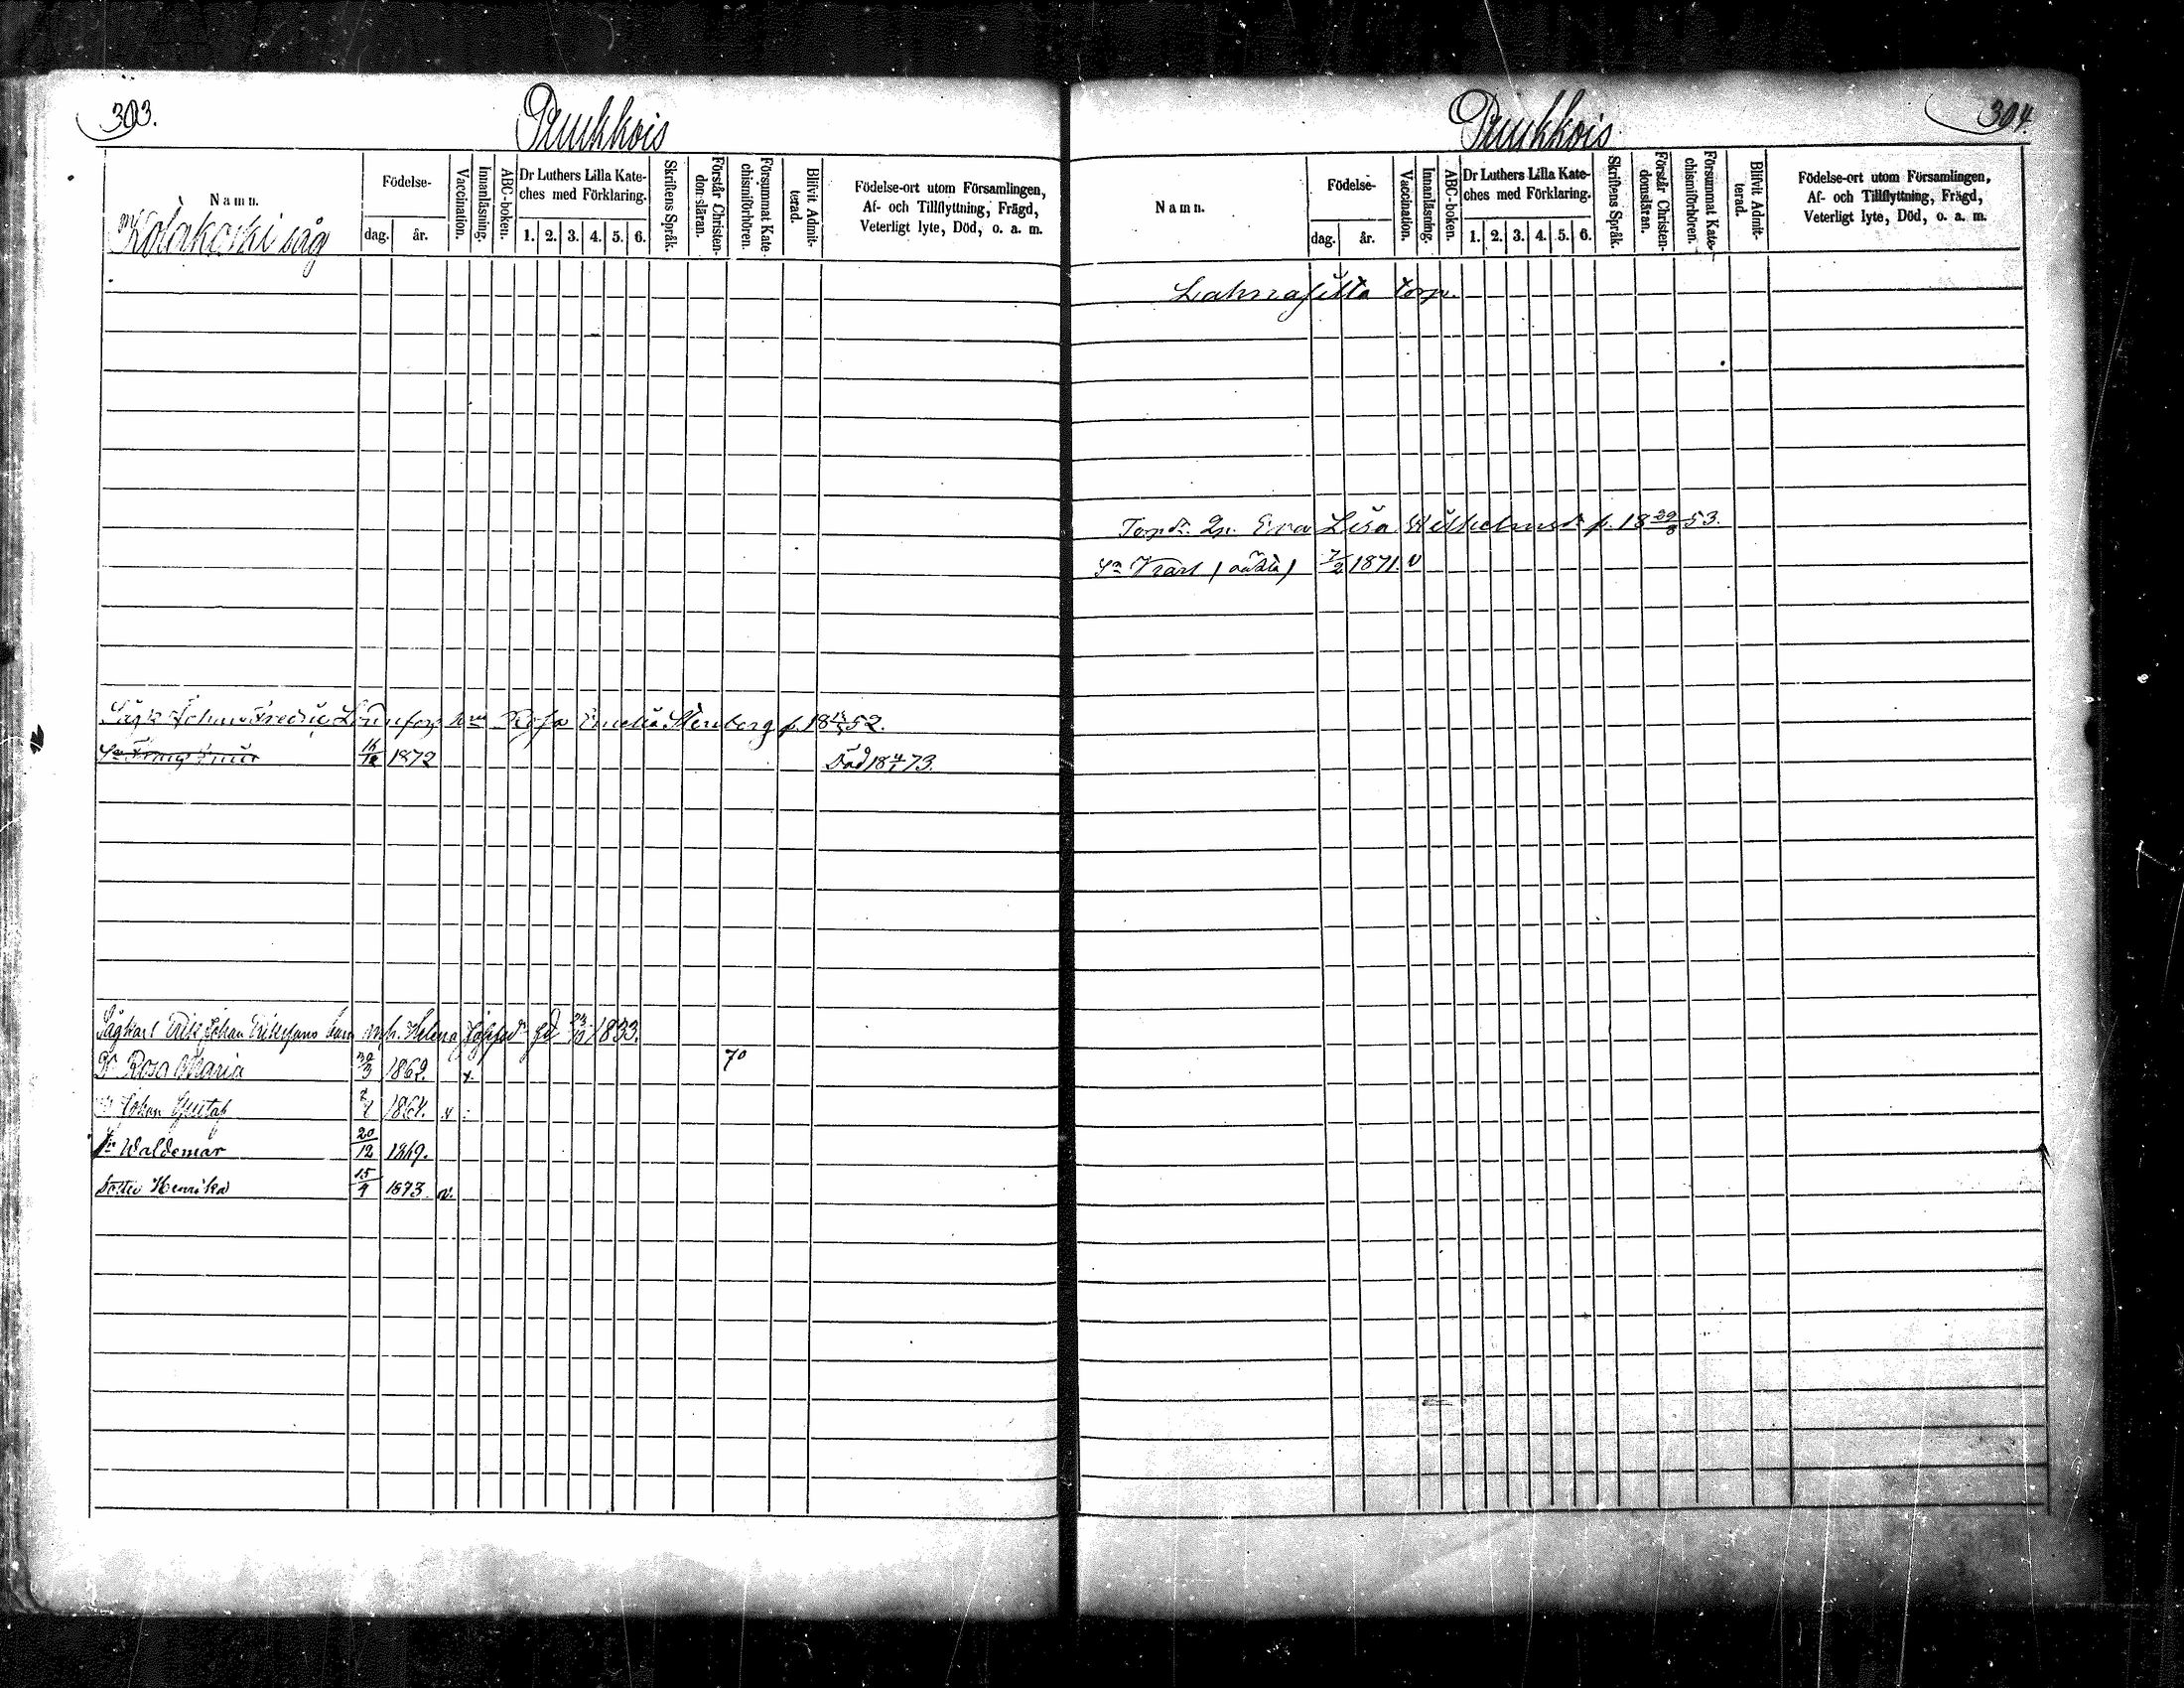 303.
Puukkois
Namn.
Födelse-
dag. år.
Vaccination.
Innanläsning.
ABC-boken.
Dr Luthers Lilla Kate-
ches med Förklaring.
1. 2. 3. 4. 5. 6.
Skriftens Språk.
Förstår Christen-
domsläran.
Försummat Kate-
chismiförhören.
Blifvit Admit-
terad.
Födelse-ort utom Församlingen,
Af- och Tillflyttning, Frägd,
Veterligt lyte, Död, o. a. m.
Kolakoski såg
Johan Fredric hru Rosa Emelia Stenborg f. 18 52.
16/12 1872 Död 18 4/1 73.
Erik Johan Erikssons barn m. h. Helena 1833.
Dr Rosa Maria 30/3 1862. x. 70
Johan Gustaf v
Sn Waldemar 20/12 1869.
Dotter Henrika 15/9 1873. v.
304.
Puukkois
Namn.
Födelse-
dag. år.
Vaccination.
Innanläsning.
ABC-boken.
Dr Luthers Lilla Kate-
ches med Förklaring.
1. 2. 3. 4. 5. 6.
Skriftens Språk.
Förstår Christen-
domsläran.
Försummat Kate-
chismiförhören.
Blifvit Admit-
terad.
Födelse-ort utom Församlingen,
Af- och Tillflyttning, Frägd,
Veterligt lyte, Död, o. a. m.
Lahnasilta torp.
Eva Lisa Wilhelmsdr f. 18 29/8 53.
Sn Karl (oäkta) 7/2 1871. v